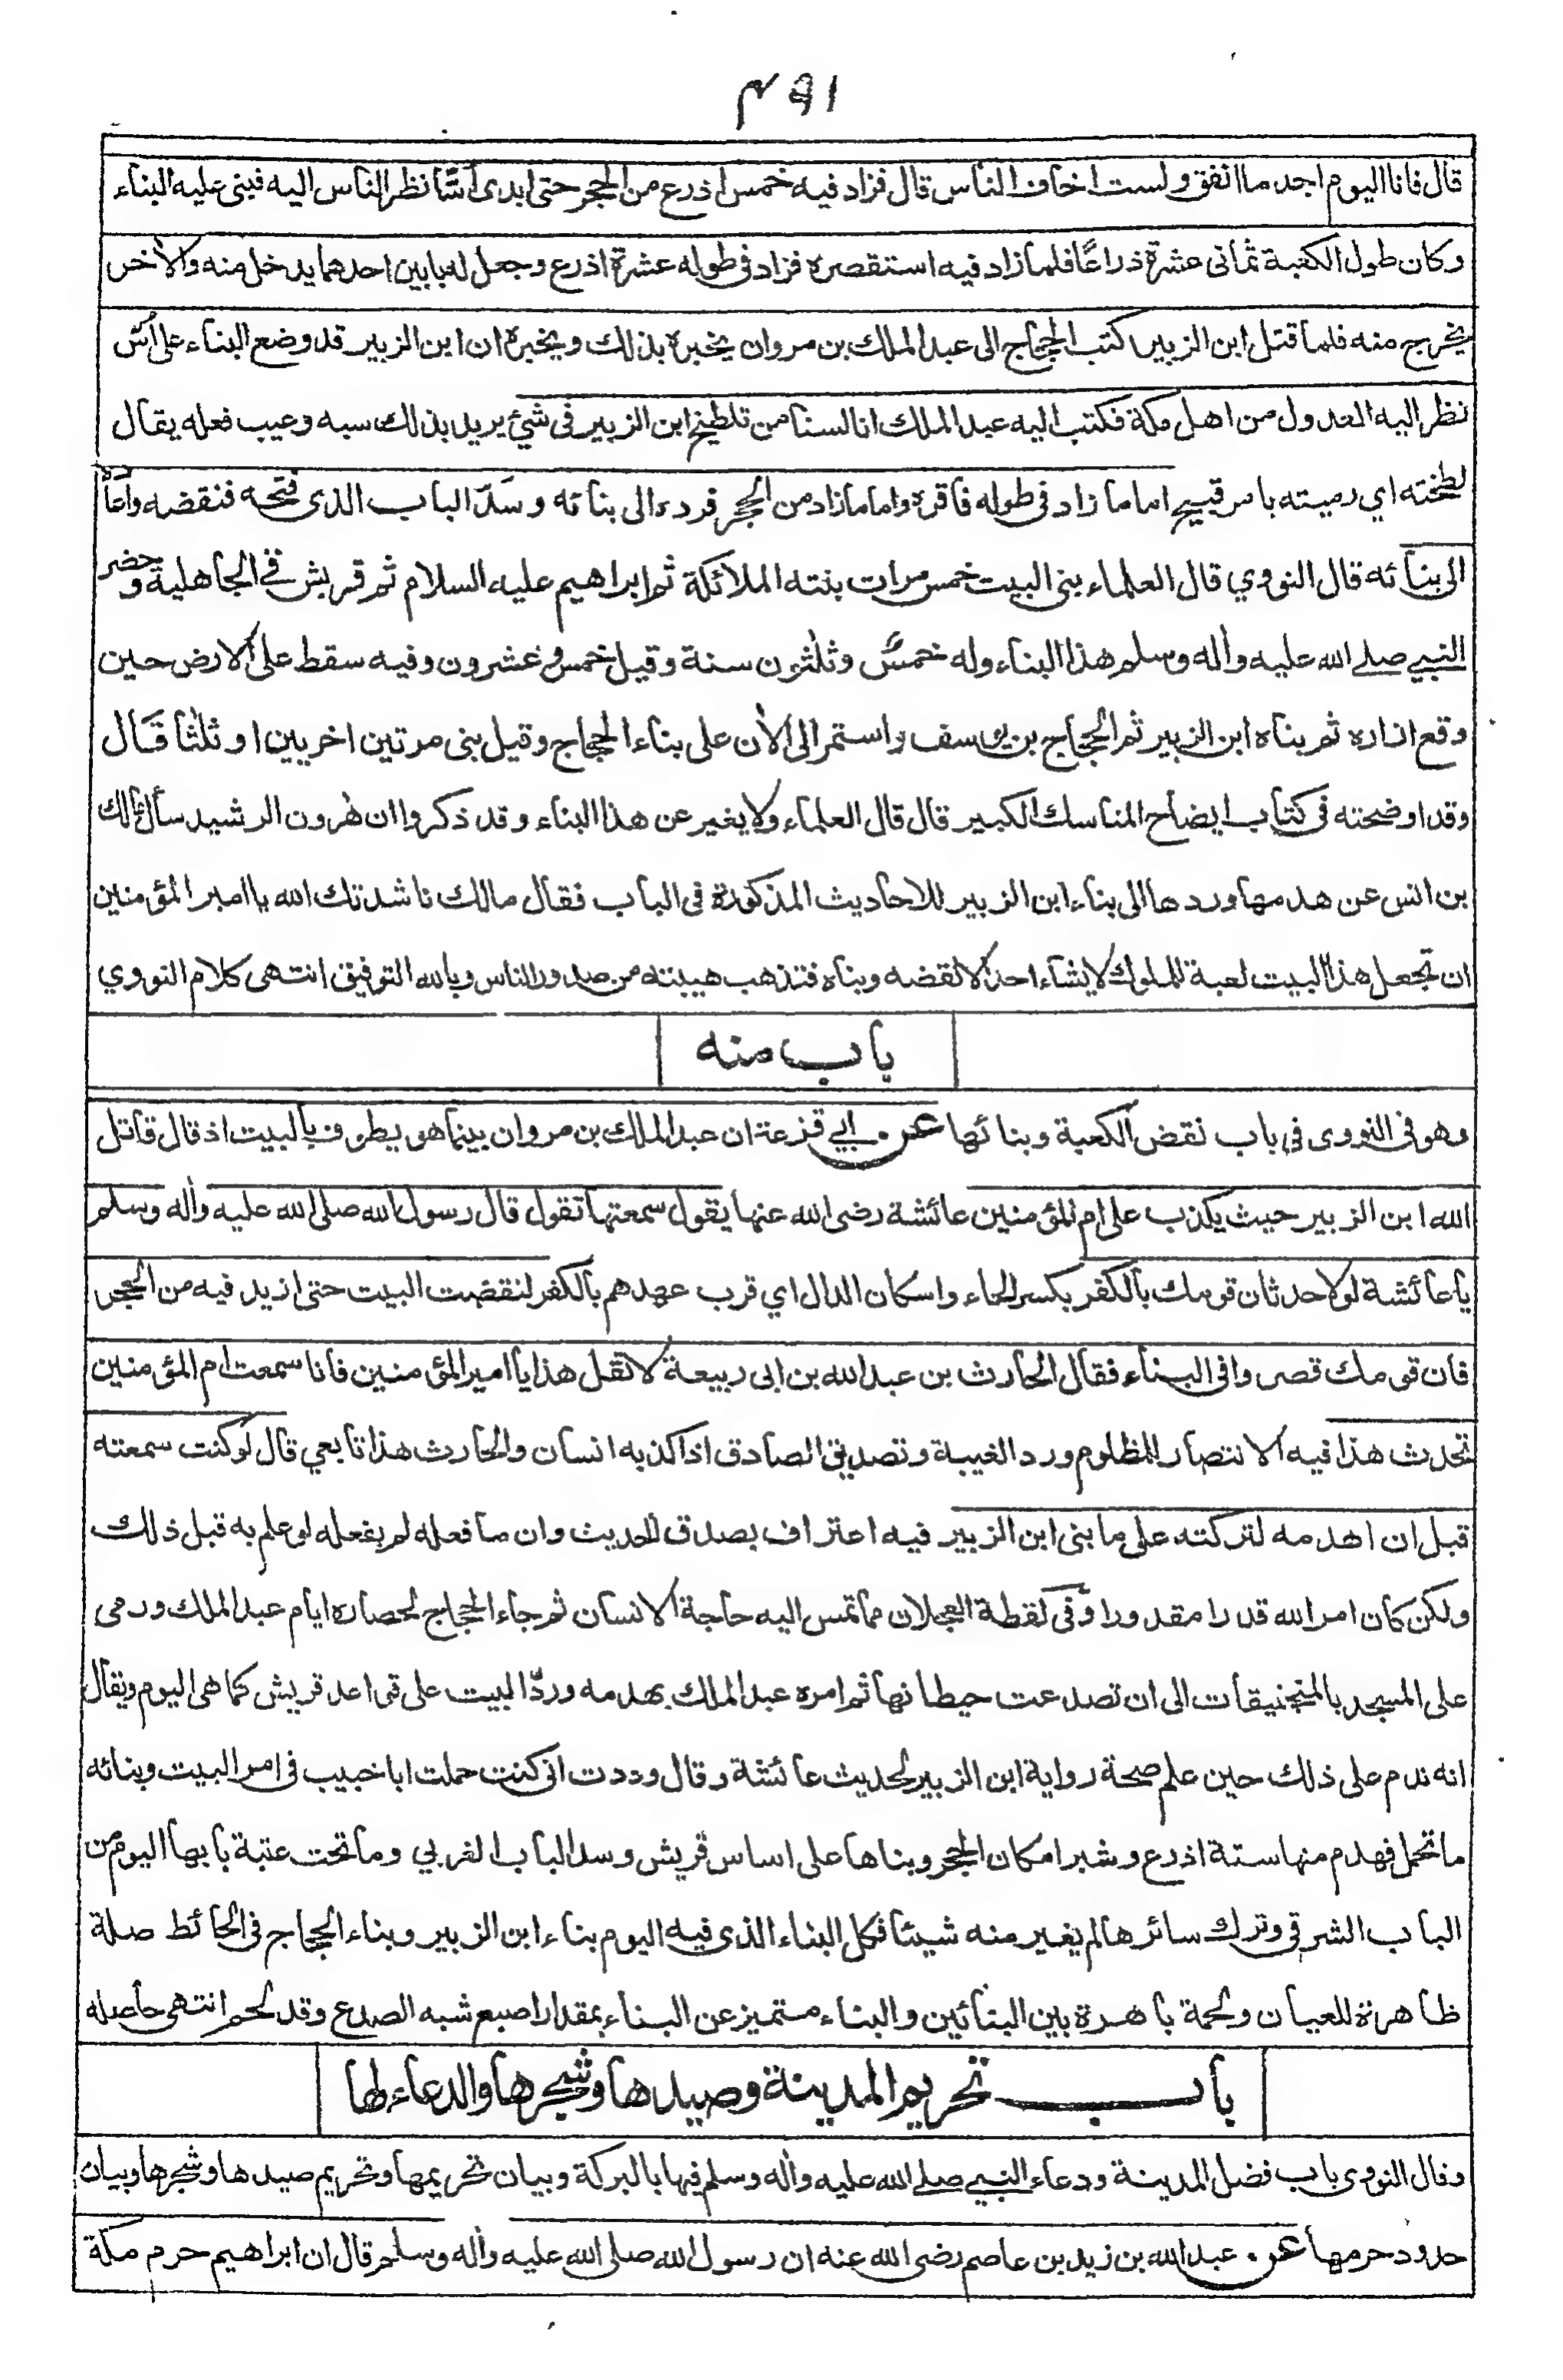 ٤٩١
قال فانا اليوم اجد ما انفق ولست اخاف الناس قال فزاد فيه خمس اذرع من الحجر حتى ابدى اُسّا نظر الناس اليه فبنى عليه البناء
وكان طول الكعبة ثمانى عشرة ذراعًا فلما زاد فيه استقصره فزاد فى طوله عشرة اذرع وجعل له بابين احدهما يدخل منه والاٰخر
يخرج منه فلما قتل ابن الزبير كتب الحجاج الى عبد الملك بن مروان يخبره بذلك ويخبره ان ابن الزبير قد وضع البناء على اُسّ
نظر اليه العدول من اهل مكة فكتب اليه عبد الملك انا لسنا من تلطيخ ابن الزبير فى شيئ يريد بذلك سبه وعيب فعله يقال
لطخته اي رميته بامر قبيح اما ما زاد فى طوله فاقره واما ما زاد من الحجر فرده الى بنائه وسَدّ الباب الذى فتحه فنقضه واعاده
الى بنائه قال النووي قال العلماء بنى البيت خمس مرات بنته الملائكة ثم ابراهيم عليه السلام ثم قريش فى الجاهلية وحضر
النبي صلے الله عليه واٰله وسلم هذا البناء وله خمسٌ وثلٰثون سنة وقيل خمس وعشرون وفيه سقط على الارض حين
وقع ازاره ثم بناه ابن الزبير ثم الحجاج بن يوسف واستمر الى الاٰن على بناء الحجاج وقيل بنى مرتين اخريين او ثلٰثا قَال
وقد اوضحته فى كتاب ايضاح المناسك الكبير قال قال العلماء ولا يغير عن هذا البناء وقد ذكروا ان هٰرون الرشيد سأل مالك
بن انس عن هدمها وردها الى بناء ابن الزبير للاحاديث المذكورة فى الباب فقال مالك ناشدتك الله يا امير المؤمنين
ان تجعل هذا البيت لعبة للملوك لا يشاء احد الا نقضه وبناه فتذهب هيبته من صدور الناس وبالله التوفيق انتهى كلام النووي
باب منه
وهو فى النووى فى باب نقض الكعبة وبنائها عن ابي قزعة ان عبد الملك بن مروان بينما هو يطوف بالبيت اذ قال قاتل
الله ابن الزبير حيث يكذب على ام المؤمنين عائشة رضى الله عنها يقول سمعتها تقول قال رسول الله صلى الله عليه واٰله وسلم
يا عائشة لولا حدثان قومك بالكفر بكسر الحاء واسكان الدال اي قرب عهدهم بالكفر لنقضت البيت حتى ازيد فيه من الحجر
فان قومك قصروا فى البناء فقال الحارث بن عبد الله بن ابى ربيعة لا تقل هذا يا امير المؤمنين فانا سمعت ام المؤمنين
تحدث هذا فيه الانتصار للمظلوم ورد الغيبة وتصديق الصادق اذا كذبه انسان والحارث هذا تابعي قال لو كنت سمعته
قبل ان اهدمه لتركته على ما بنى ابن الزبير فيه اعتراف بصدق الحديث وان ما فعله لم يفعله لو علم به قبل ذلك
ولكن كان امر الله قدرا مقدورا وفى لقطة العجلان مما تمس اليه حاجة الانسان ثم جاء الحجاج لحصاره ايام عبد الملك ورمى
على المسجد بالمنجنيقات الى ان تصدعت حيطانها ثم امره عبد الملك بهدمه وردّ البيت على قواعد قريش كما هى اليوم ويقال
انه ندم على ذلك حين علم صحة رواية ابن الزبير لحديث عائشة وقال وددت انى كنت حملت ابا خبيب فى امر البيت وبنائه
ما تحمل فهدم منها ستة اذرع وشبرا مكان الحجر وبناها على اساس قريش وسد الباب الغربي وما تحت عتبة بابها اليوم من
الباب الشرقى وترك سائرها لم يغير منه شيئا فكل البناء الذى فيه اليوم بناء ابن الزبير وبناء الحجاج فى الحائط صلة
ظاهرة للعيان ولحمة باهرة بين البنائين والبناء متميز عن البناء بمقدار اصبع شبه الصدع وقد لحم انتهى حاصله
باب تحريم المدينة وصيدها وشجرها والدعاء لها
وقال النووى باب فضل المدينة ودعاء النبي صلے الله عليه واٰله وسلم فيها بالبركة وبيان تحريمها وتحريم صيدها وشجرها وبيان
حدود حرمها عن عبد الله بن زيد بن عاصم رضى الله عنه ان رسول الله صلى الله عليه واٰله وسلم قال ان ابراهيم حرم مكة